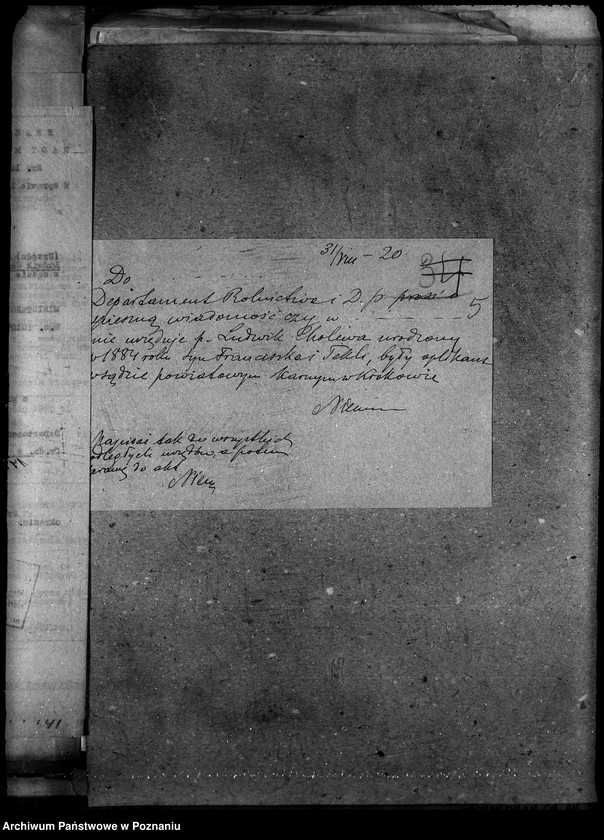 31/VIII – 20.
34
5
Do
Departament Rolnictwa i D. p. prosi o
spieszną wiadomość czy w – – – –
nie urzęduje p. Ludwik Cholewa urodzony
w 1884 roku syn Franciszka i Tekli, były aplikant
w sądzie powiatowym karnym w Krakowie
Napisać tak do wszystkich
podległych urzędów, a potem
do akt
41
Archiwum Państwowe w Poznaniu